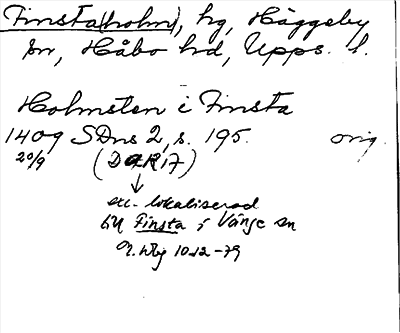 Finsta(holm), hg, Häggeby
sn, Håbo hd, Upps. l.
Holmsten i Finsta
1409 SDns 2, s. 195. orig.
20/9 (DRA17)
↓
lokaliserad
till Finsta i Vänge sn
10.12-79